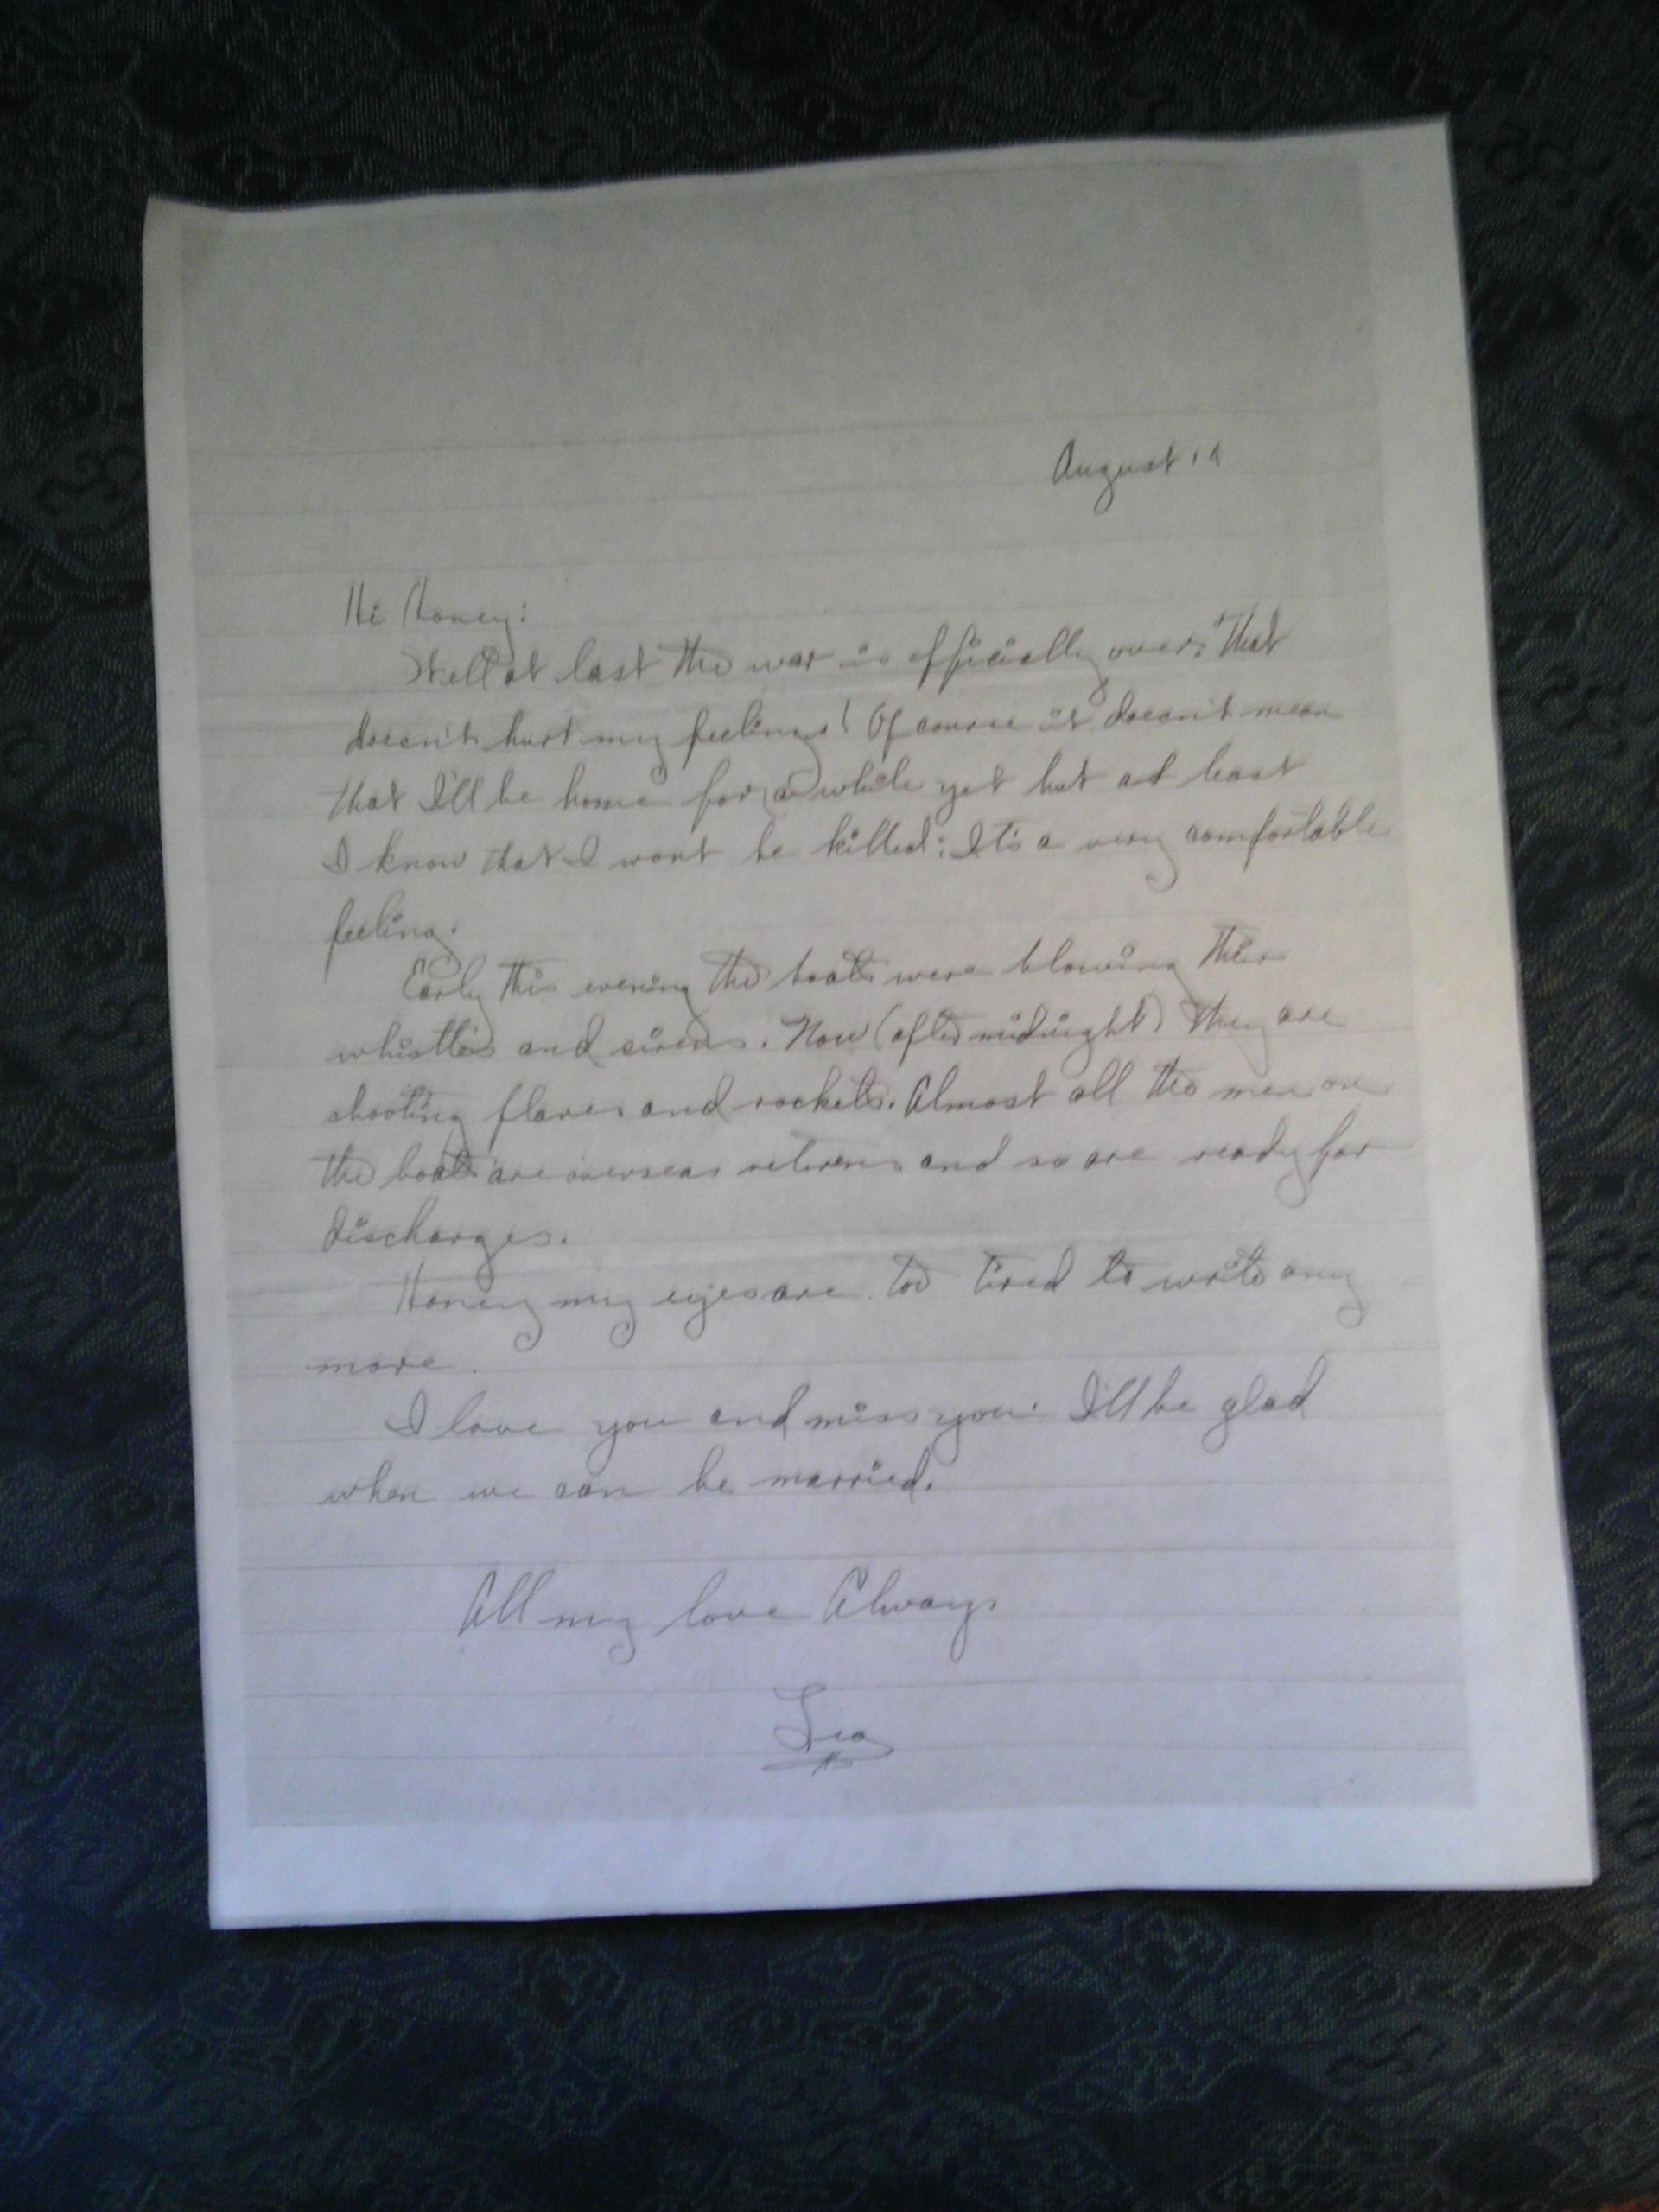 August 14
Hi Honey:
Well at last the war is officially over. That
doesn't hurt my feelings! Of course it doesn't mean
that I'll be home for a while yet but at least
I know that I wont be killed. It's a very comfortable
feeling.
Early this evening the boats were blowing their
whistles and sirens. Now (after midnight) they are
shooting flares and rockets. Almost all the men on
the boats are overseas veterans and so are ready for
discharges.
Honey my eyes are too tired to write any
more.
I love you and miss you. I'll be glad
when we can be married.
All my love Always
Leo